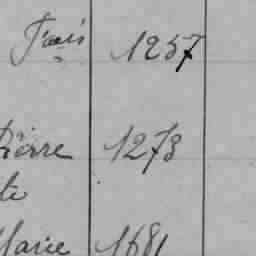 1257
Pierre 1273
te
Marie 1681